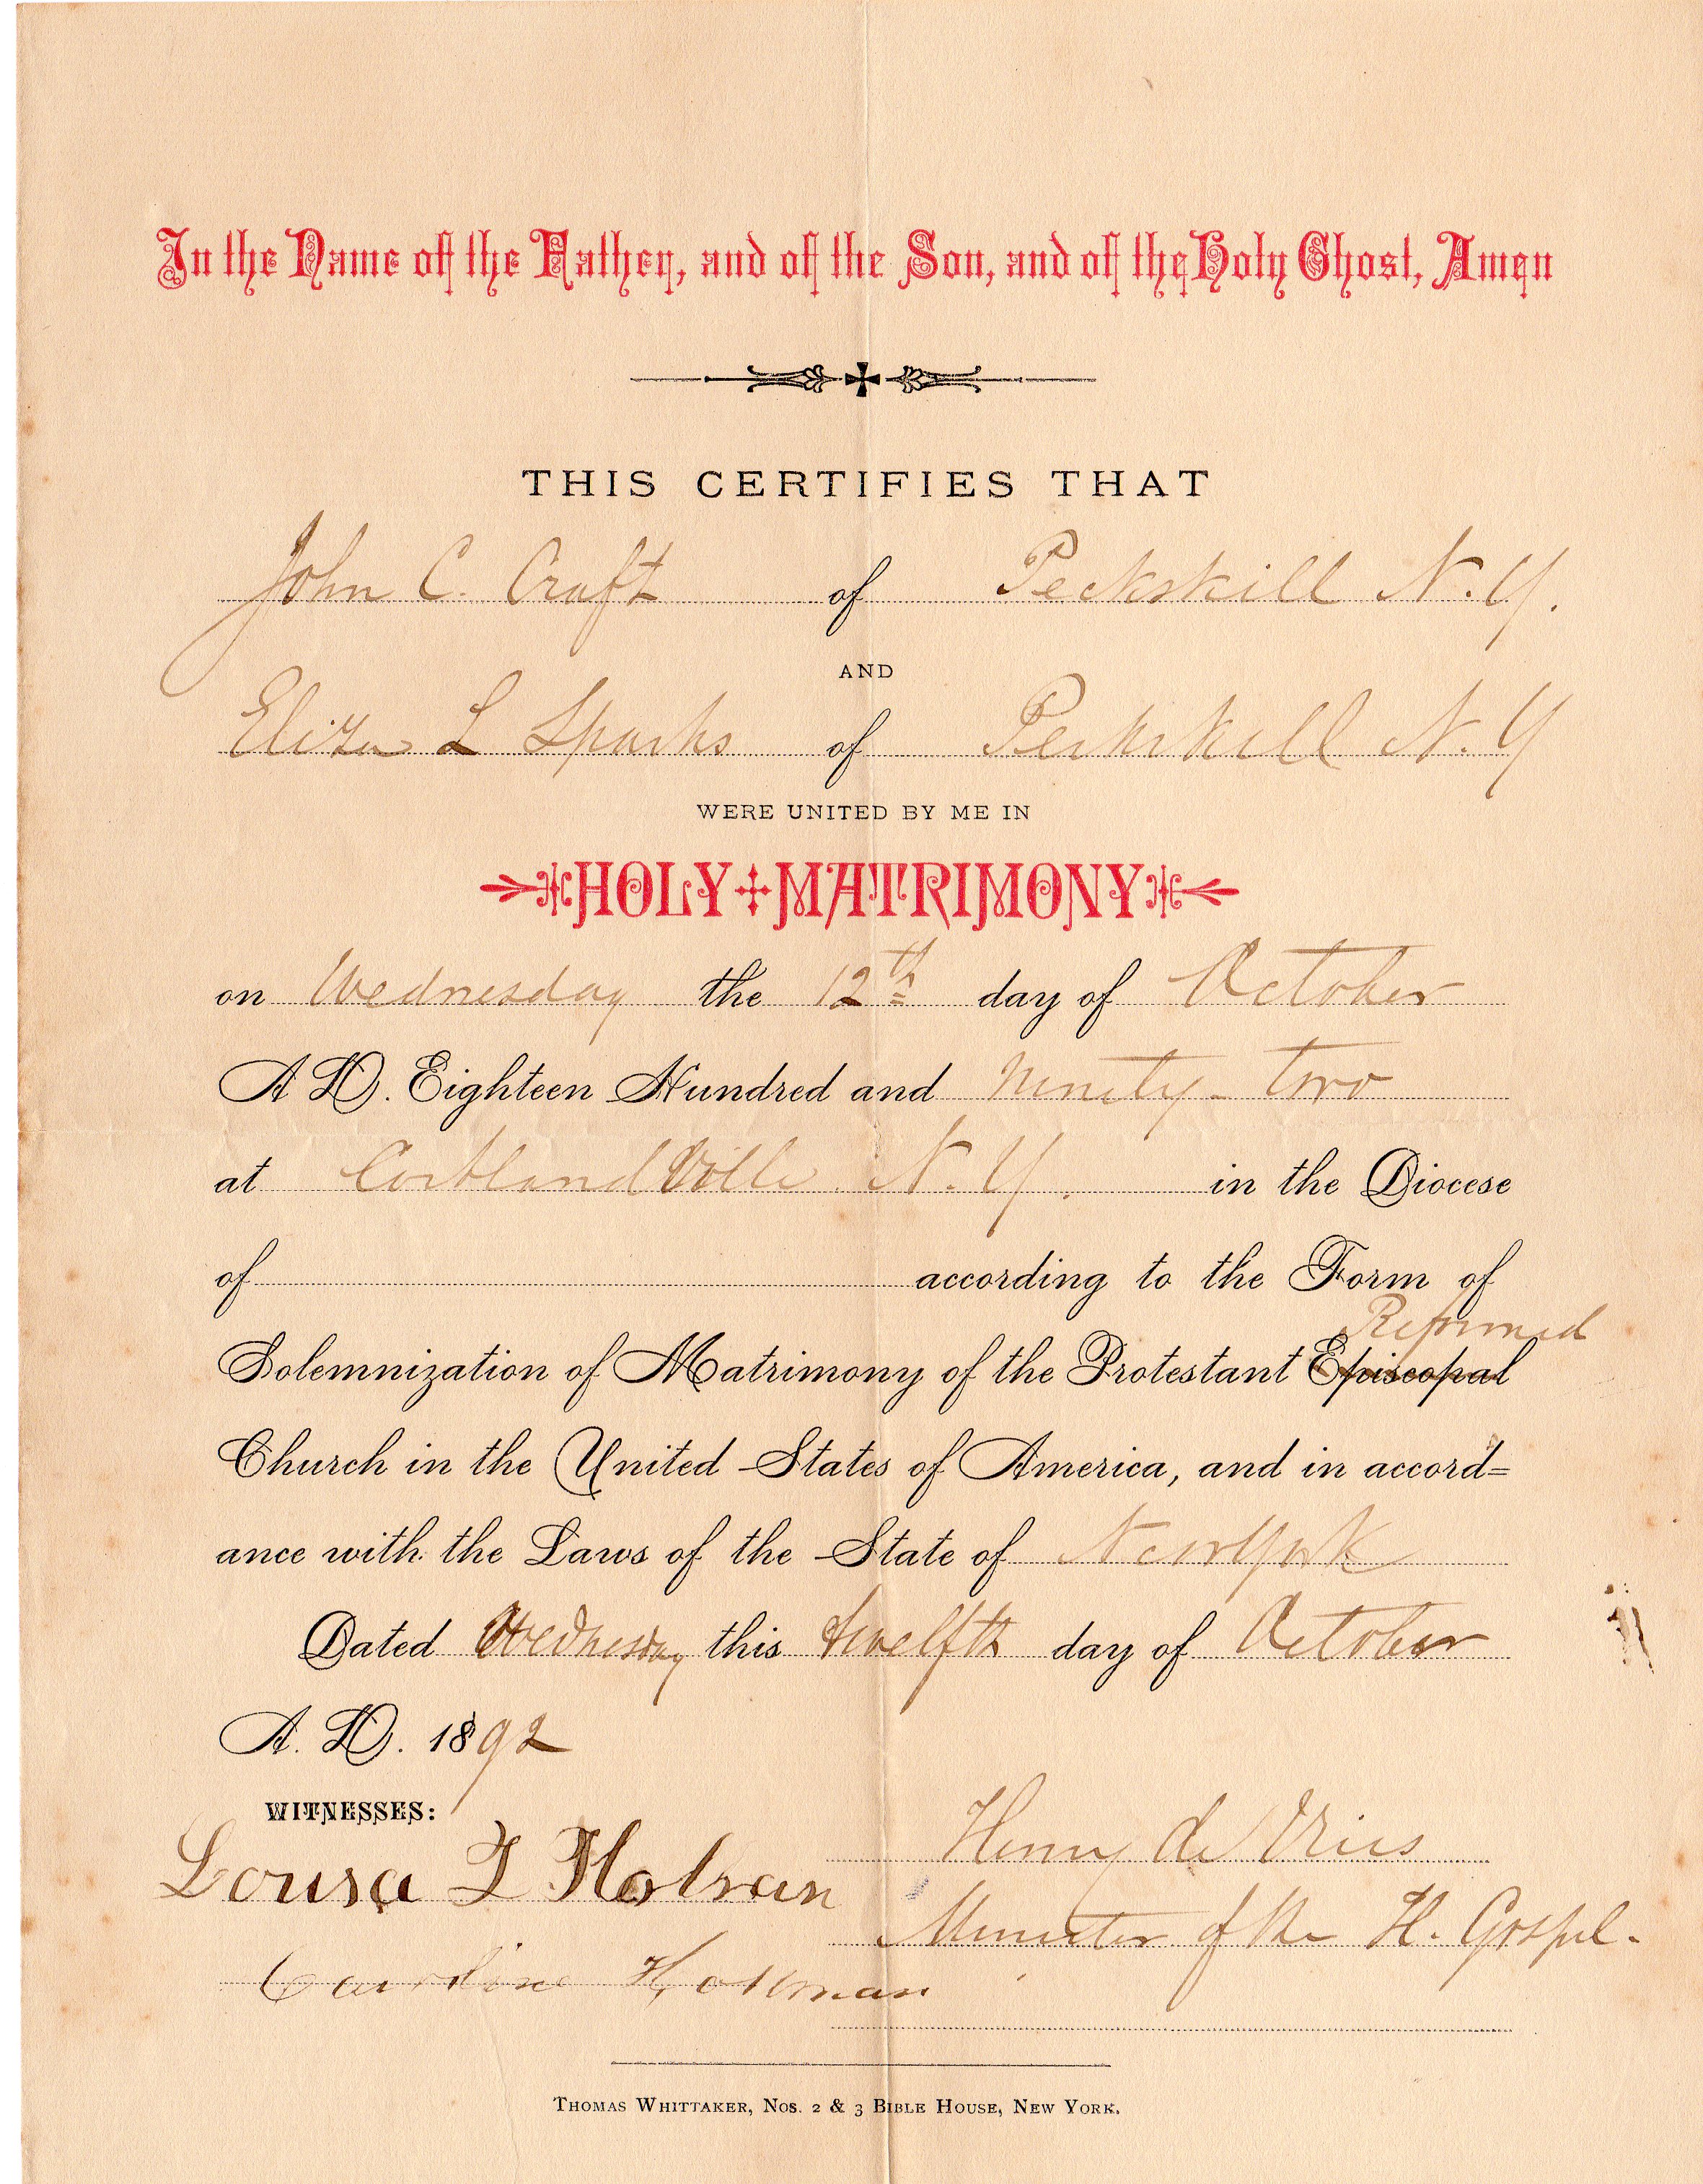 In the Name of the Father, and of the Son, and of the Holy Ghost, Amen
THIS CERTIFIES THAT
John C. Craft of Peekskill N.Y.
AND
Eliza L Sparks of Peekskill N.Y
WERE UNITED BY ME IN
HOLY MATRIMONY
on Wednesday the 12th day of October
A D. Eighteen Hundred and Ninety-two
at CortlandVille N.Y. in the Diocese
of according to the Form of
Reformed
Solemnization of Matrimony of the Protestant Episcopal
Church in the United States of America, and in accord=
ance with the Laws of the State of New York
Dated Wednesday this twelfth day of October
A. D. 1892
WITNESSES:
Henry de Vries
Lousa
Minister of the H. Gospel.
Caroline
THOMAS WHITTAKER, NOS. 2 & 3 BIBLE HOUSE, NEW YORK.